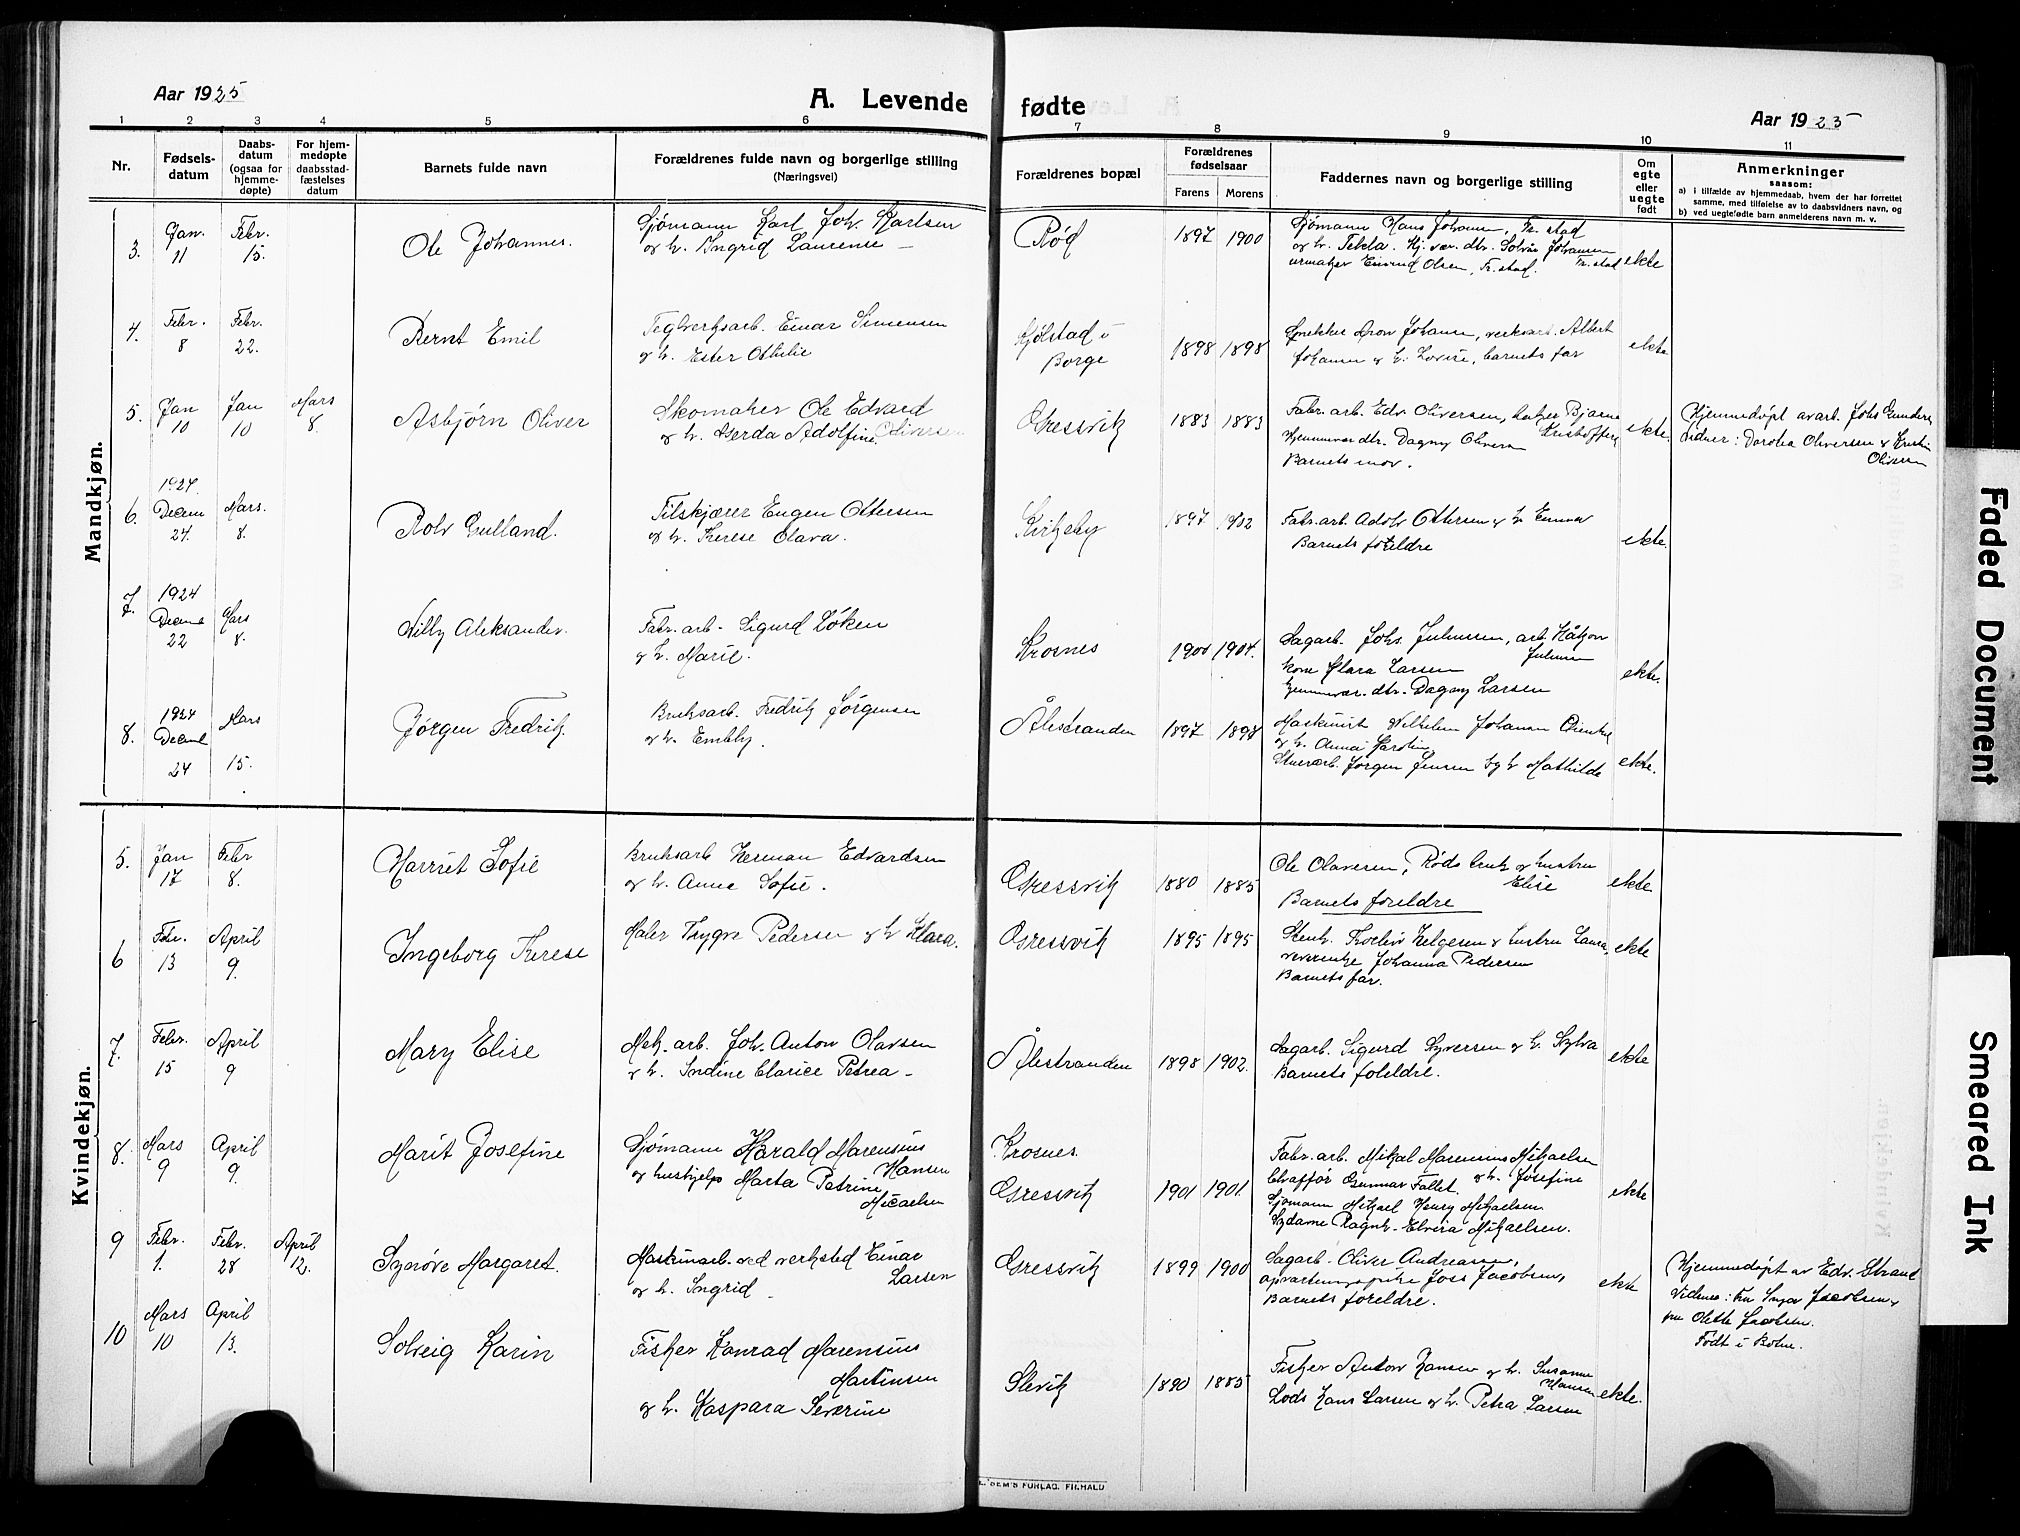 Aar 1925
A. Levende fødte
Aar 1925
1 2 3 4 5 6 7 8 9 10 11
Nr.
Fødsels-
datum
Daabs-
datum
(ogsaa for
hjemme-
døpte)
For hjem-
medøpte
daabsstad-
fæstelses
datum
Barnets fulde navn
Forældrenes fulde navn og borgerlige stilling
(Næringsvei)
Forældrenes bopæl
Forældrenes
fødselsaar
Farens Morens
Faddernes navn og borgerlige stilling
Om
egte
eller
uegte
født
Anmerkninger
saasom:
a) i tilfælde av hjemmedaab, hvem der har forrettet
samme, med tilføielse av to daabsvidners navn, og
b) ved uegtefødte barn anmelderens navn m. v.
Mandkjøn.
3. Jan. 11 Febr. 15.
Ole Johannes.
Sjømann Karl Joh. Karlsen
og h. Ingrid Laurense
Rød
1897 1900
Sjømann Hans Johansen, Fr.stad
og h. Tekla. Hj. vær. dtr. Solveig Johansen
urmaker Eivind Olsen, Fr.stad. Fr.stad
ekte
4. Febr. 8 Febr. 22.
Bernt Emil
Teglverksarb. Einar Simensen
og h. Ester Othilie
Kjølstad i
Borge
1898 1898
Snekker Johansen, verksarb. Albert
Johansen og h. Lovise, barnets far
ekte
5. Jan 10 Jan 10 Mars 8.
Asbjørn Oliver
Skomaker Ole Edvard
og h. Gerda Adolfine Oliversen
Gressvik
1883 1883
Fabr. arb. Edv. Oliversen, Bjarne
Kristoffers
Hjemmevær. dtr. Dagny Oliversen
Barnets mor.
ekte.
Hjemmedøpt av arb. Johs Gunders
Vidner: Dorthea Oliversen & Kristin
Oliversen
6. 1924. Decem 24. Mars. 8.
Rolv Gulland.
Filskjærer Eugen Ottersen
og h. Therese Olava.
Kirkeby
1897 1902
Fabr. arb. Adolv Ottersen & h Emma
Barnets foreldre
ekte.
7. 1924 Decemb 22 Mars 8.
Willy Aleksander.
Fabr. arb. Sigurd Løken
og h. Marie.
Krosnes
1900 1904.
Sagarb. Johs. Juliussen, arb. Håkon
Juliussen
kone Klara Larsen
hjemmevær. dtr. Dagny Larsen
ekte.
8. 1924 Decemb 24 Mars 15.
Jørgen Fredrik
Bruksarb. Fredrik Jørgensen
og h. Embly.
Ålestranden
1897 1898
Maskinist Vilhelm Johansen
og h. Anna Karoline
Stuerarb. Jørgen Jensen og h Mathilde
ekte.
Kvindekjøn.
5. Jan 17 Febr 8.
Harriet Sofie
Bruksarb Herman Edvardsen
og h. Anna Sofie.
Gressvik
1880 1885
Ole Olavesen, Røds bruk og hustru
Elise
Barnets foreldre
ekte
6 Febr. 13 April 9.
Ingeborg Therese
Maler Trygve Pedersen og h Klara.
Gressvik
1895 1895
Stenh. Thorleiv Helgesen & hustru Laura,
Johanna Pedersen
Barnets far.
ekte
7. Febr. 15 April 9
Mary Elise
Mek. arb. Joh. Anton Olavsen
og h. Indine Clarice Petrea
Ålestranden
1898 1902.
Sagarb. Sigurd Syversen og h. Sylva
Barnets foreldre.
ekte
8. Mars 9 April 9.
Marit Josefine
Sjømann Harald Marensius
Hansen
og hushjelp Marta Petrine
Micaelsen
Krosnes
Gressvik
1901 1901.
Fabr. arb. Mikal Marensius Mikaelsen
og h. Josefine
Chaffør Gunnar Fallet.
Sjømann Mikael Henry Mikaelsen
Sydame Ragnh. Elvira Mikaelsen.
ekte
9 Febr. 1. Febr. 28 April 12.
Synøve Margaret.
Maskinarb. ved verksted Einar
Larsen
og h. Ingrid
Gressvik
1899 1900
Sagarb. Oliver Andreassen,
opvartningspike Joss Jacobsen,
Barnets foreldre.
ekte
Hjemmedøpt av Edv. Strand
Vidner: fru Inga Jacobsen &
fru Olette Jacobsen.
Født i
10 Mars 10 April 13.
Solveig Karin
Fisker Konrad Marensius
Martinsen
og h. Kaspara Severine
Slevik
1890 1885
Fisker Anton Hansen og h. Susanne
Hansen
Lods Hans Larsen og h. Petra Larsen
ekte.
SEM'S FORLAG. FR.HALD
Faded Document
Smeared Ink